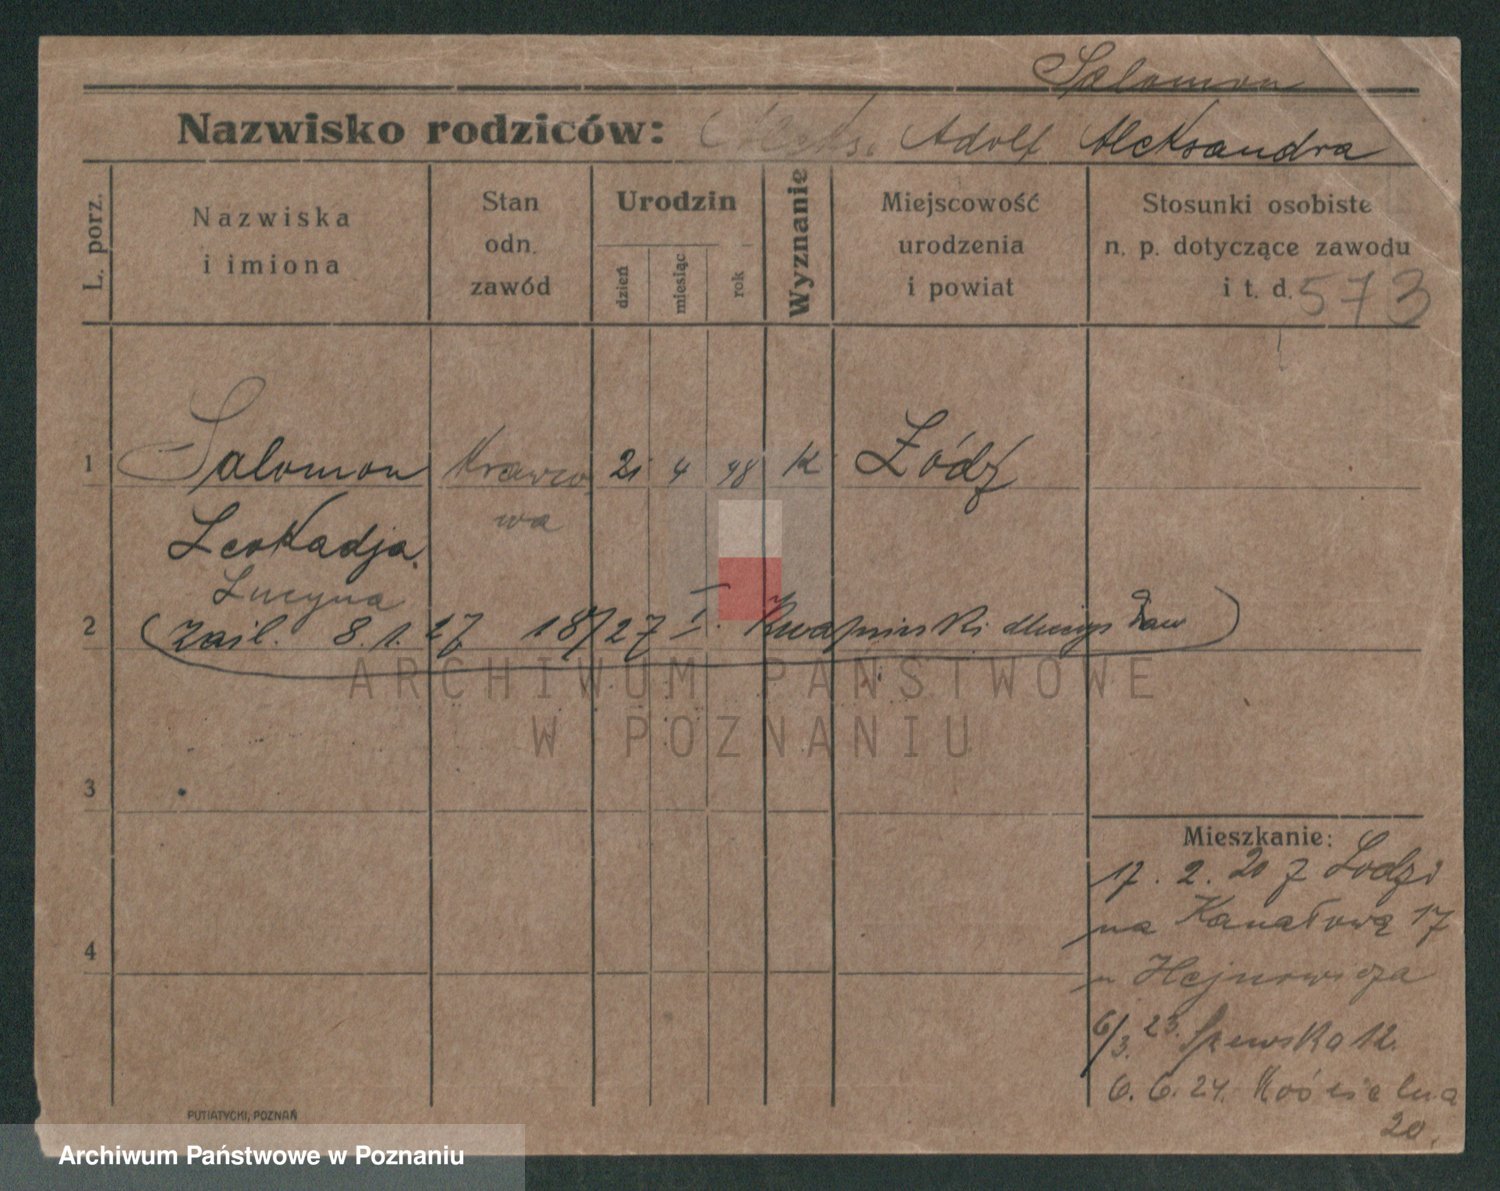 Salomon
Nazwisko rodziców: Adolf Aleksandra
L. porz.
Nazwiska
i imiona
Stan
odn.
zawód
Urodzin
dzień
miesiąc
rok
Wyznanie
Miejscowość
urodzenia
i powiat
Stosunki osobiste
n. p. dotyczące zawodu
i t. d. 573
1 Salomon Krawco 21 4 98 K Łódź
wa
Leokadja
Lucyna
2 (zaśl. 8.1.27 18/27 I. Kwapiński)
3
4
Mieszkanie:
17. 2. 20 z Łodzi
na Kanałową 17
Hejnowicza
6/3. 23. Szewska 12.
6. 6. 24. Kościelna
20.
PUTIATYCKI, POZNAŃ
ARCHIWUM PAŃSTWOWE
W POZNANIU
Archiwum Państwowe w Poznaniu